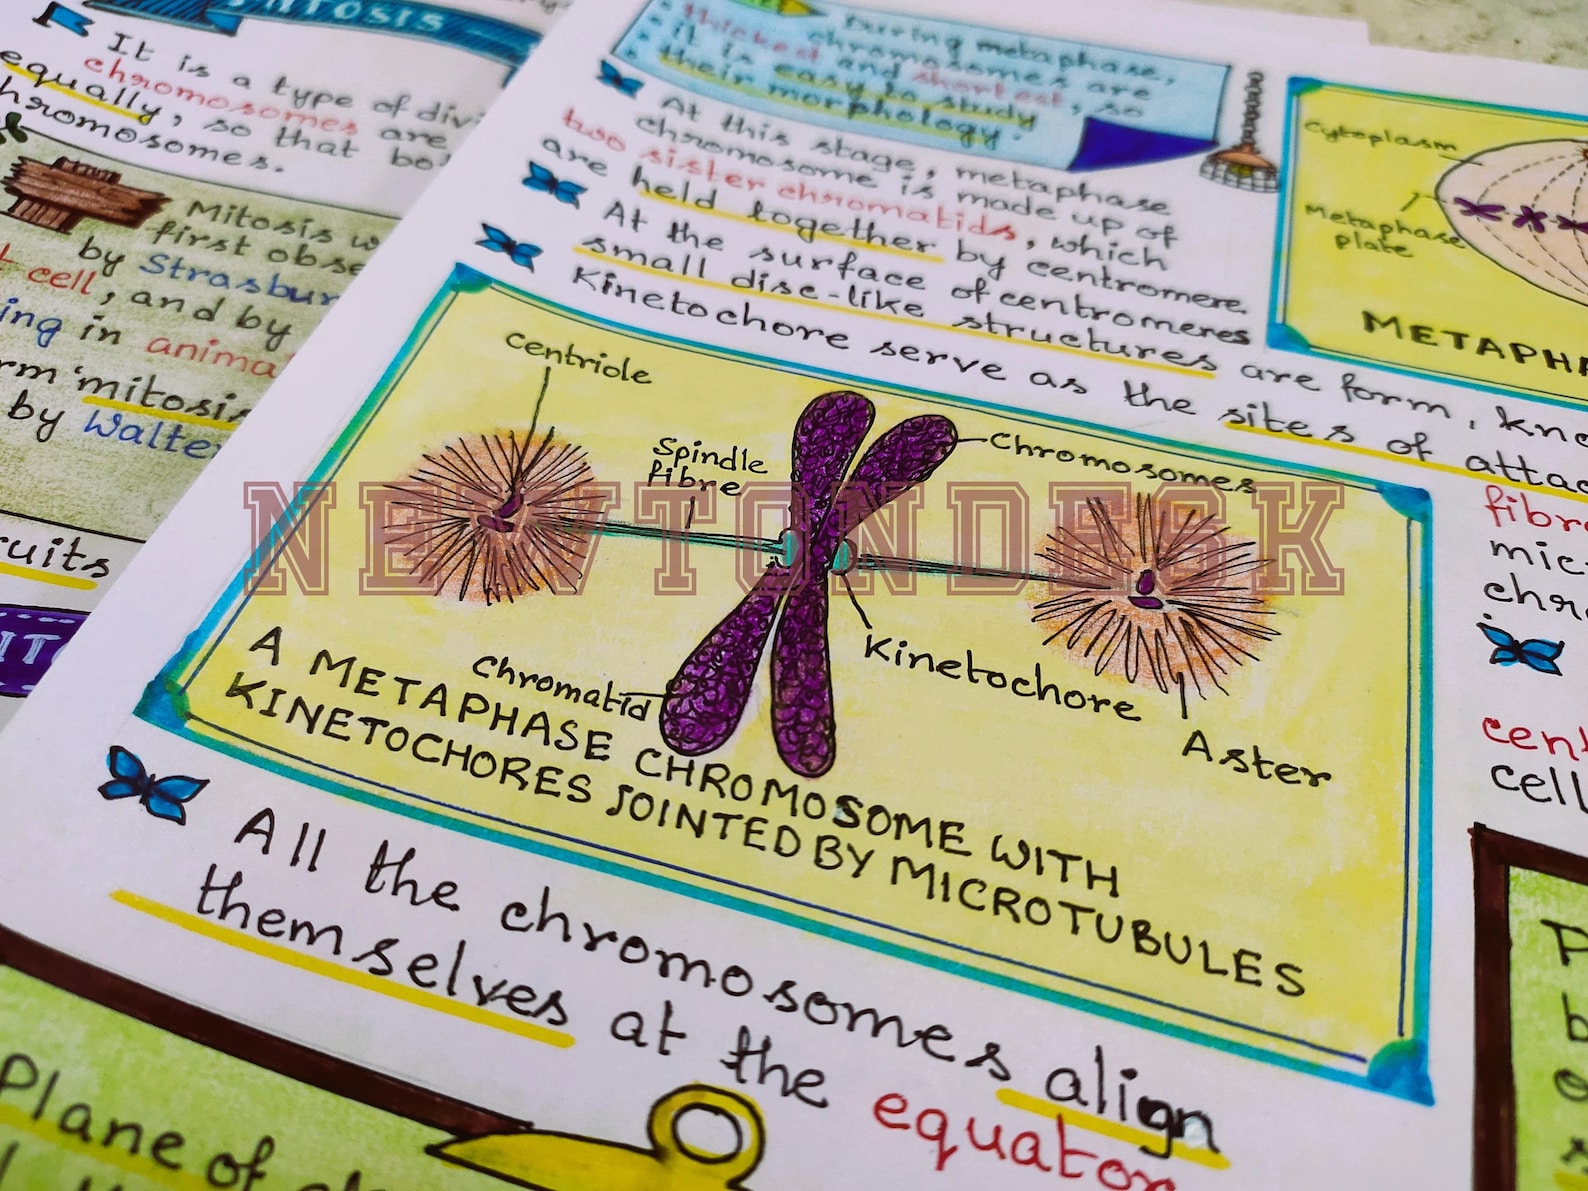 MITOSIS
It is a type of
chromosomes are
equally, so that
chromosomes.
Mitosis
first
by
cell, and by
in
by
During metaphase,
chromosomes are
thickest and shortest, so
it is easy to study
their morphology.
At this stage, metaphase
chromosome is made up of
two sister chromatids, which
are held together by centromere.
At the surface of centromeres
small disc-like structures are form,
Kinetochore serve as the sites of
Cytoplasm
Metaphase
plate
centriole
Spindle
fibre
Chromosomes
Kinetochore
Chromatid
Aster
NEWTONDESK
A METAPHASE CHROMOSOME WITH
KINETOCHORES JOINTED BY MICROTUBULES
All the chromosomes align
themselves at the equator
cell
Plane of